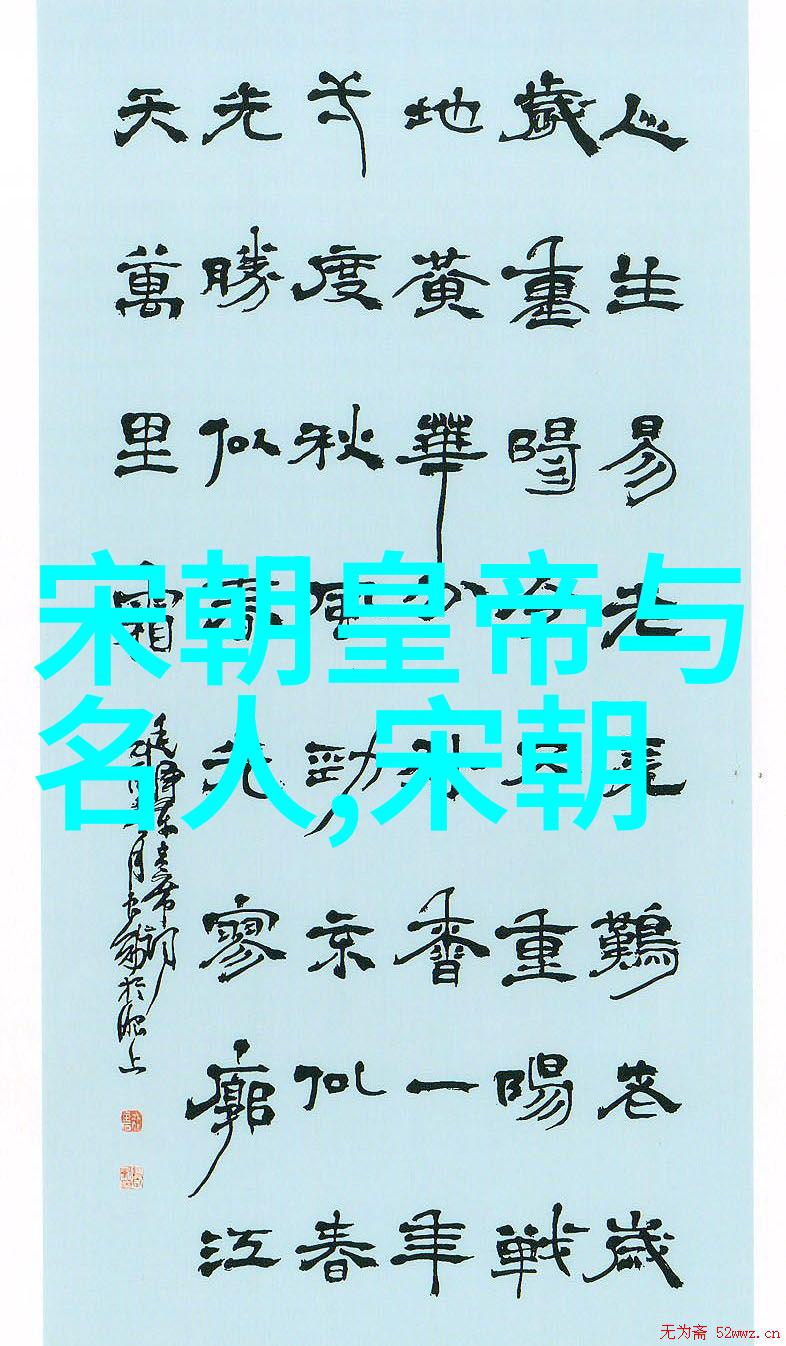 宋朝皇帝与
名人,宋朝
人生易老天難老歲
歲重陽今又重陽戰
地黃華分外香一年
度秋風勁不似春
光勝似春光寥廓江
天萬里霜
毛澤東主席詞
无为斋 52wwz.cn